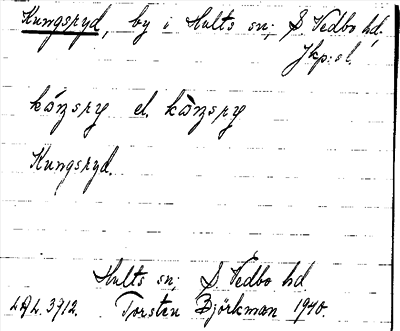 Kungsryd, by i Hults sn; S. Vedbo hd.
Jkp:s l.
kóŋsry el. kòŋsry
Kungsryd.
Hults sn; S. Vedbo hd
LAL. 3912. Torsten Björkman 1940.